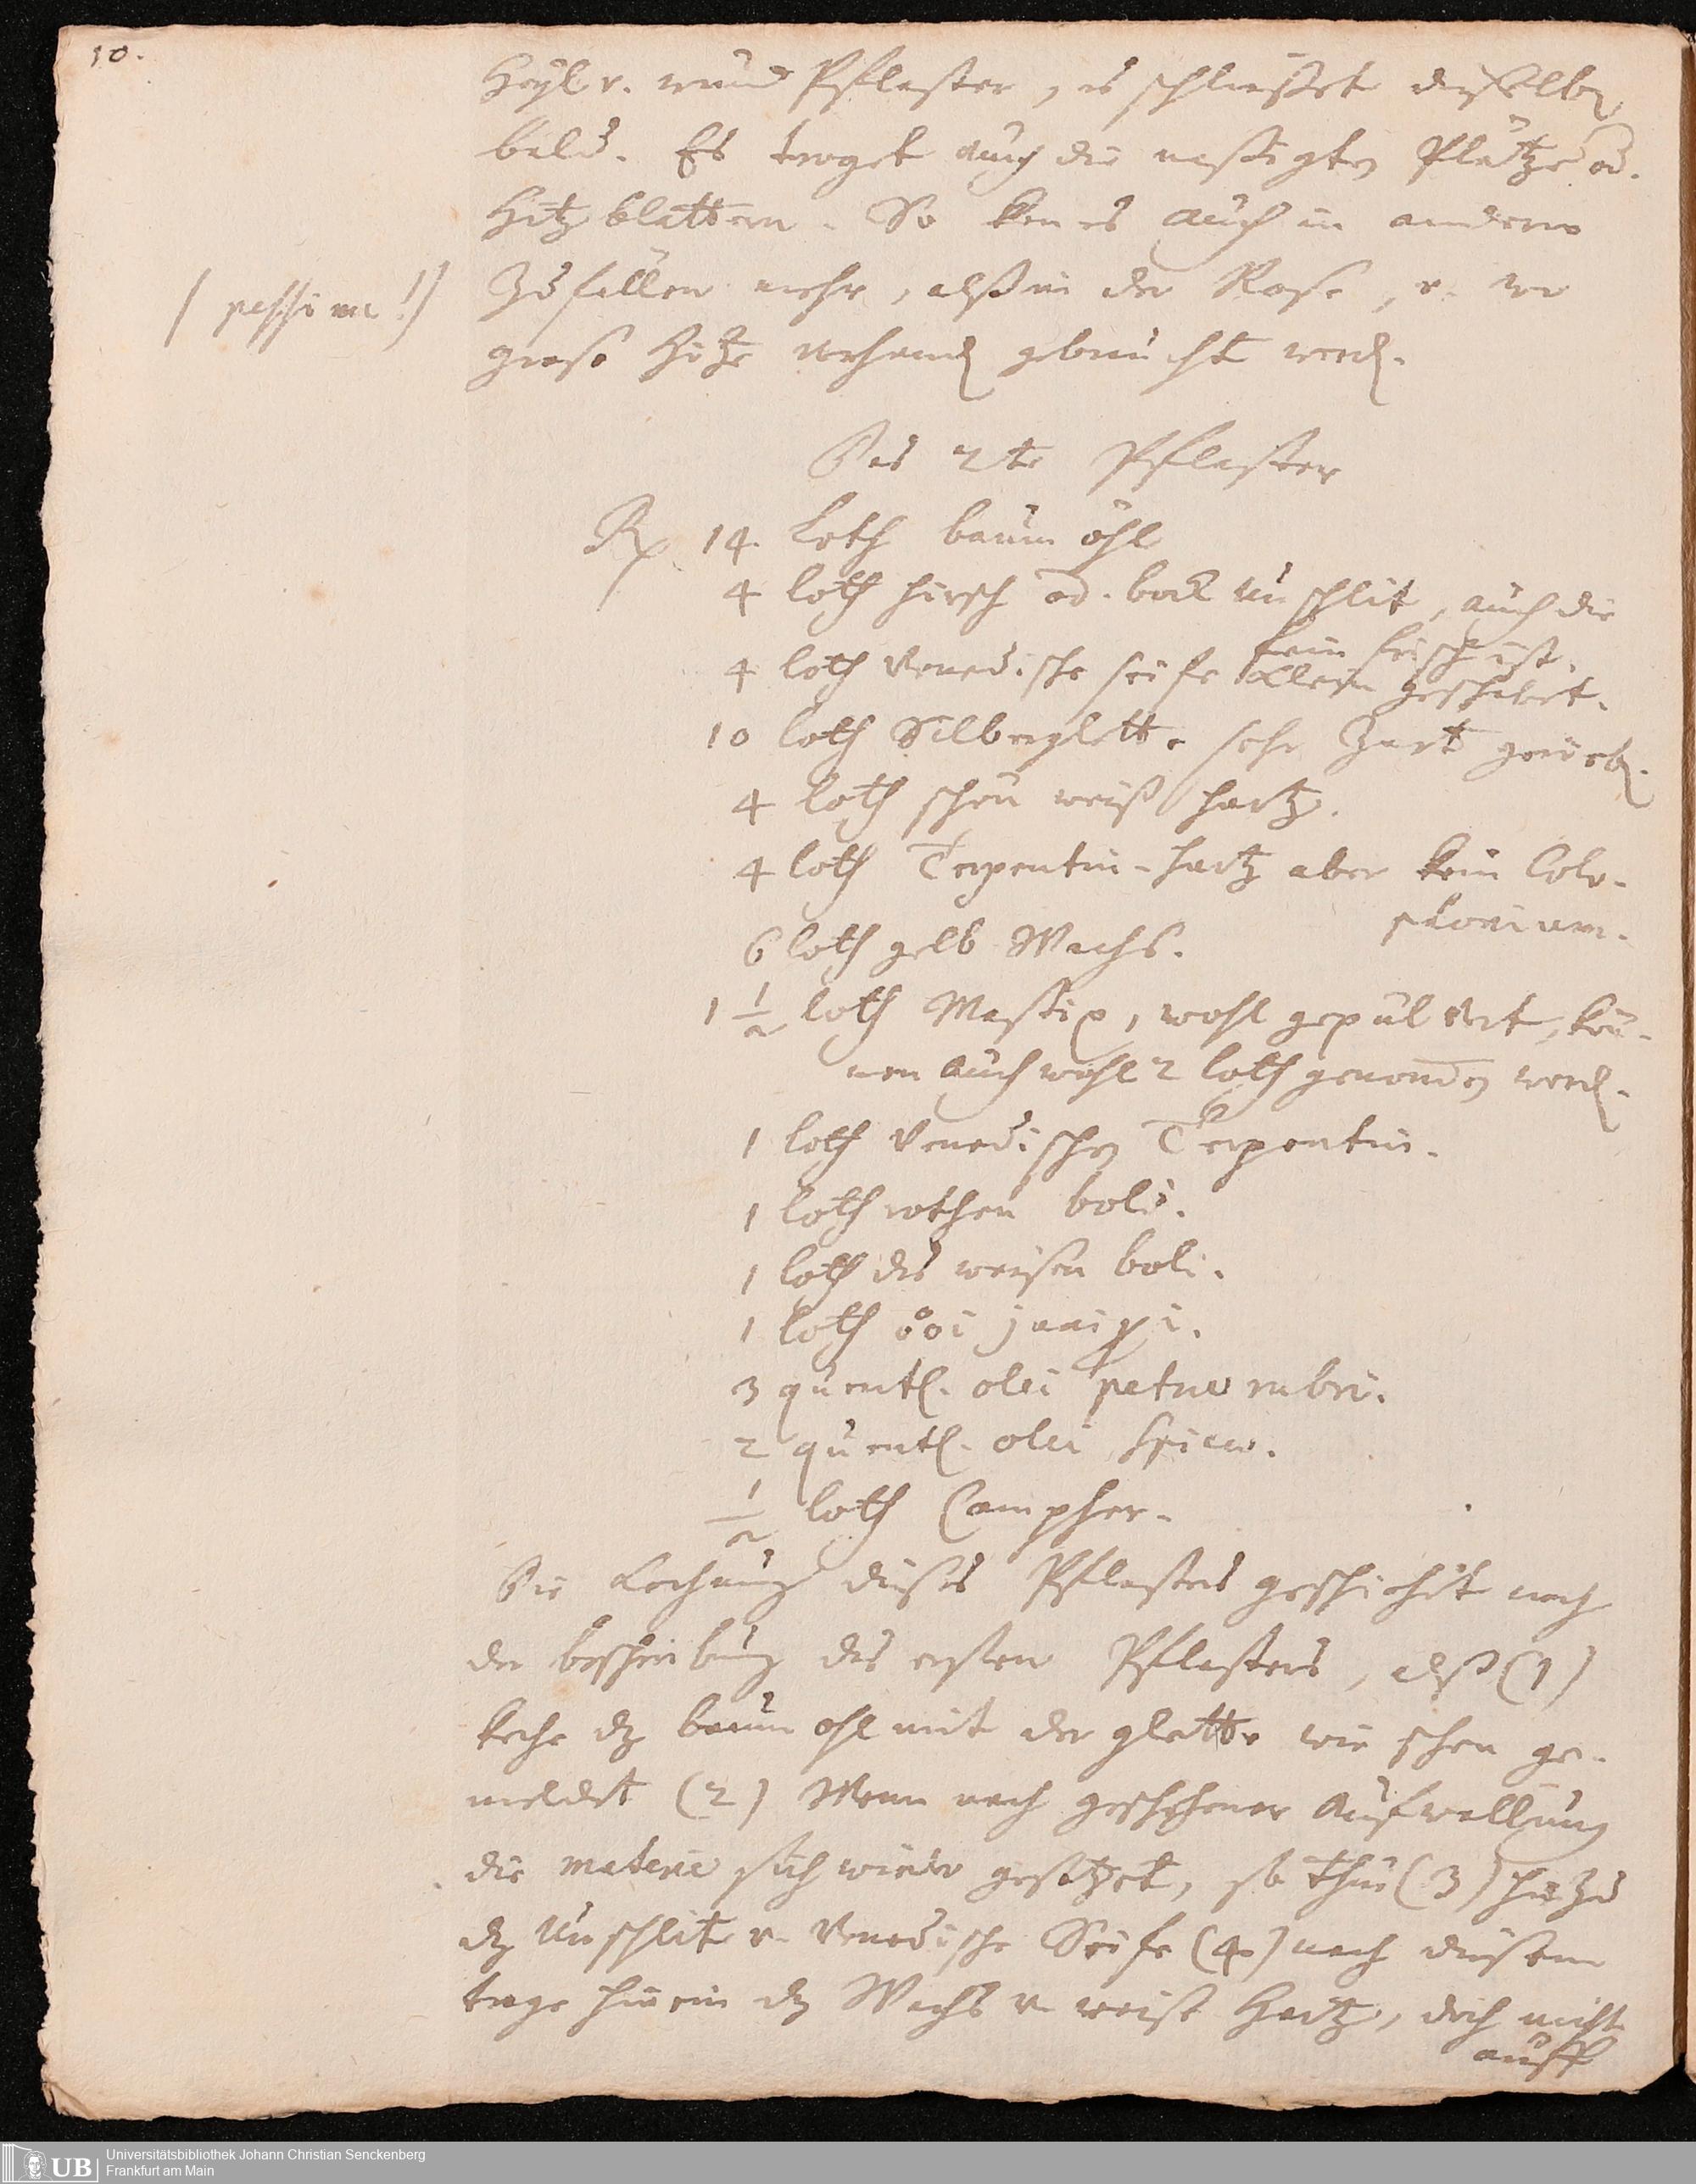 10.
Heyl v. wund Pflaster, es schliesset dieselbe
bald. Es truget auch die nassigten Plätze od.
Hitz blattern. So kan es auch in andern
(pessime!)
Zufällen mehr, alß in der Rose, v. wo
grose Hitze vorhand gebraucht werd.
Das 2te Pflaster
Rp 14. Loth baum öhl
4 loth hirsch od. bock unschlit, auch die
fein frisch ist.
4 loth Venedische seife klein geschabet.
10 loth Silberglette sehr Zart gerieb.
4 loth schön weiß hartz.
4 loth Terpentin-hartz aber kein Colo-
phonium.
6 loth gelb Wachs.
1 1/2 loth Mastix, wohl gepulvert, kön-
nen auch wohl 2 loth genomen werd.
1 loth Venedischen Terpentin.
1 loth rothen boli.
1 loth des weisen boli.
1 loth juniperi.
3 quentl. olei petrae rubri.
2 quentl. olei Spicae.
1/2 loth Campher.
Die Kochung dieses Pflasters geschicht nach
der beschreibung des ersten Pflasters, alß (1)
koche dz baum ohl mit der glette wie schon ge-
meldet (2) Wenn nach geschehener Aufwallung
die materie sich wieder gesetzet, so thue (3) hinzu
dz Unschlit v. Venedische Seife (4) nach diesem
trage hinein dz Wachs v. weise Hartz, doch nicht
auff
UB Universitätsbibliothek Johann Christian Senckenberg
Frankfurt am Main